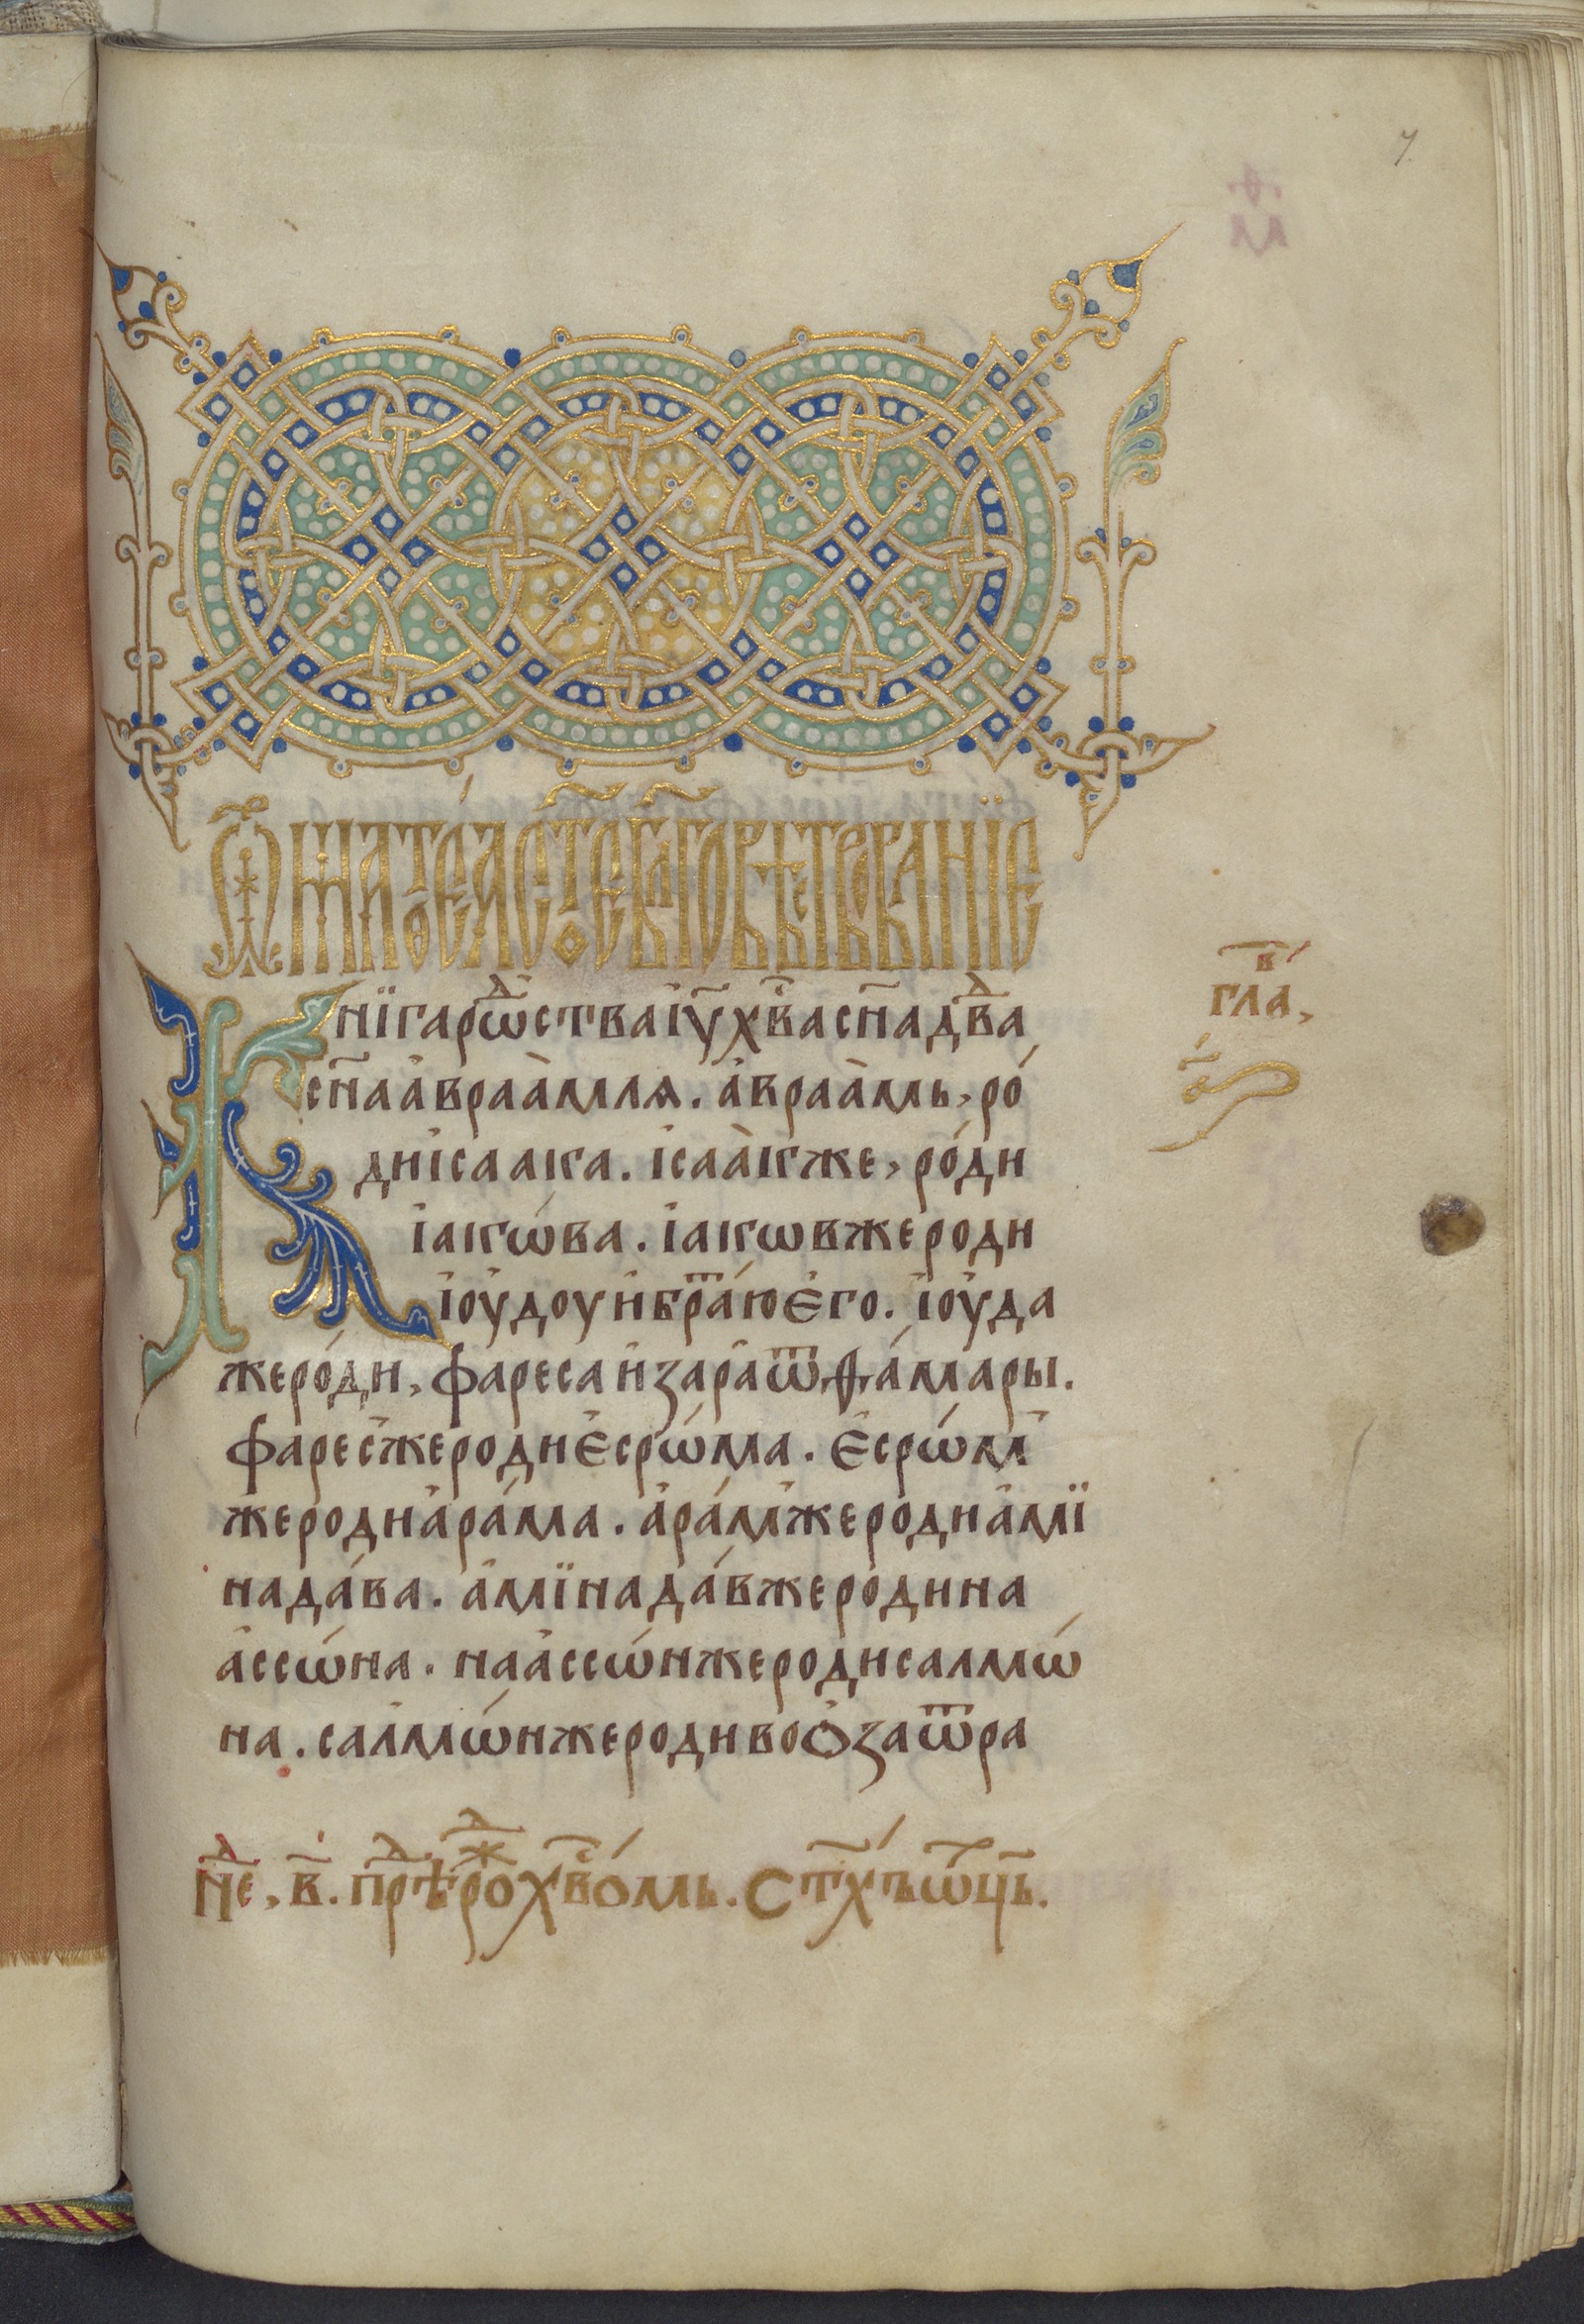 7
Ѿ МАТѲЕА СТ҃Е БЛ҃ГОВѢСТВОВАНІЕ
Кнїгародⷭ҇стваі҆у҃хв҃асн҃адв҃дⷣа
сн҃аа҆враа̀млѧ. а҆враа̀мь, ро́
диі҆саака. і҆саа̀кже, ро́ди
і҆акѡ́ва. і҆акѡвжероди
і҆оу҆доуи҆бра́тⷮюе҆го. і҆оу҆да
жеро́ди, фаресаи҆зараѿѳа́мары.
фаресжеродие҆срѡ́ма. е҆срѡ́м
жеродиа҆ра́ма. а҆ра́мжеродиа҆мї
нада́ва. а҆мїнада́вжеродина
а҆ссѡ́на. наа҆ссѡ́нжеродисалмѡ́
на. салмѡ́нжеродивоо҆заѿра
в҃
гла,
за҃
нⷣе, в҃. прⷣѣрожⷣхв҃о́мь. ст҃хъѡ҃ць.